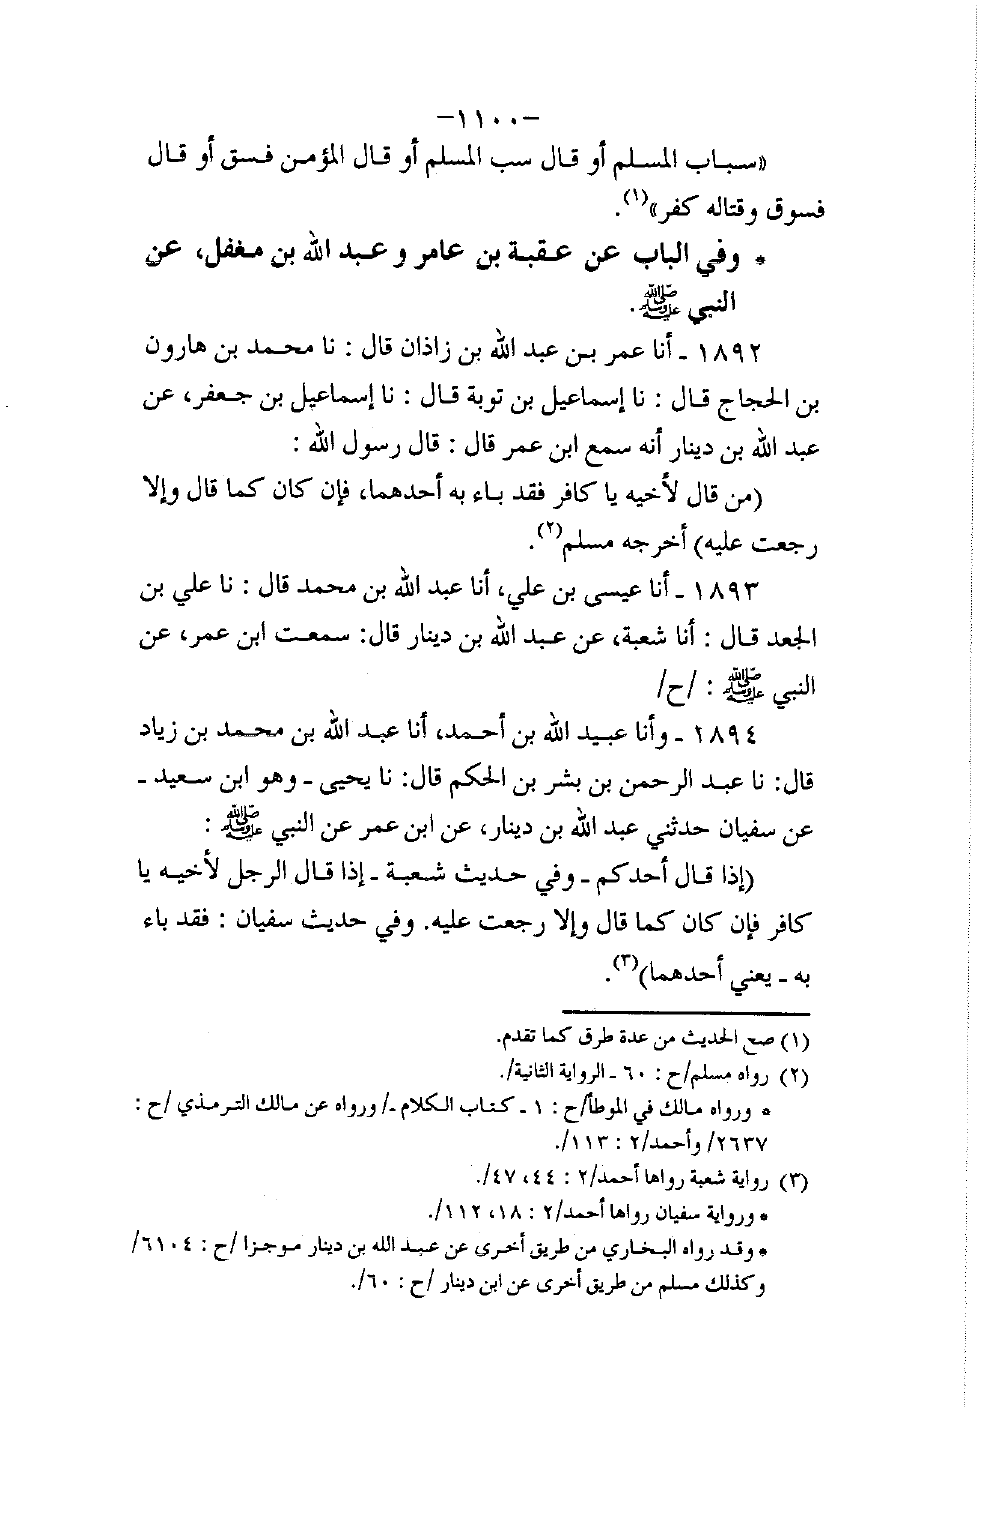 -١١٠٠-
«سباب المسلم أو قال سب المسلم أو قال المؤمن فسق أو قال
فسوق وقتاله كفر»(١).
* وفي الباب عن عقبة بن عامر وعبد الله بن مغفل، عن
النبي ﷺ.
١٨٩٢ - أنا عمر بن عبد الله بن زاذان قال : نا محمد بن هارون
بن الحجاج قال : نا إسماعيل بن توبة قال : نا إسماعيل بن جعفر، عن
عبد الله بن دينار أنه سمع ابن عمر قال : قال رسول الله :
(من قال لأخيه يا كافر فقد باء به أحدهما، فإن كان كما قال وإلا
رجعت عليه) أخرجه مسلم(٢).
١٨٩٣ - أنا عيسى بن علي، أنا عبد الله بن محمد قال : نا علي بن
الجعد قال : أنا شعبة، عن عبد الله بن دينار قال: سمعت ابن عمر، عن
النبي ﷺ : /ح/
١٨٩٤ - وأنا عبيد الله بن أحمد، أنا عبد الله بن محمد بن زياد
قال: نا عبد الرحمن بن بشر بن الحكم قال: نا يحيى - وهو ابن سعيد -
عن سفيان حدثني عبد الله بن دينار، عن ابن عمر عن النبي ﷺ :
(إذا قال أحدكم - وفي حديث شعبة - إذا قال الرجل لأخيه يا
كافر فإن كان كما قال وإلا رجعت عليه. وفي حديث سفيان : فقد باء
به - يعني أحدهما)(٣).
(١) صح الحديث من عدة طرق كما تقدم.
(٢) رواه مسلم/ح : ٦٠ - الرواية الثانية/.
* ورواه مالك في الموطأ/ح : ١ - كتاب الكلام -/ ورواه عن مالك الترمذي /ح :
٢٦٣٧/ وأحمد/٢ : ١١٣/.
(٣) رواية شعبة رواها أحمد/٢ : ٤٤، ٤٧/.
* ورواية سفيان رواها أحمد/٢ : ١٨، ١١٢/.
* وقد رواه البخاري من طريق أخرى عن عبد الله بن دينار موجزا /ح : ٦١٠٤/
وكذلك مسلم من طريق أخرى عن ابن دينار /ح : ٦٠/.